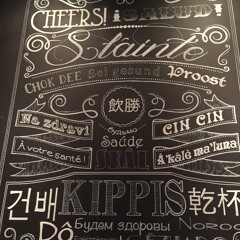 CHEERS! ¡SALUD!
Slainte
CHOK DEE Sei gesund Proost
飲勝
Na zdravi будьмо CIN CIN
À votre santé! Saúde Å'kålè ma'luna
건배 KIPPIS 乾杯
Будем здоровы NOROC